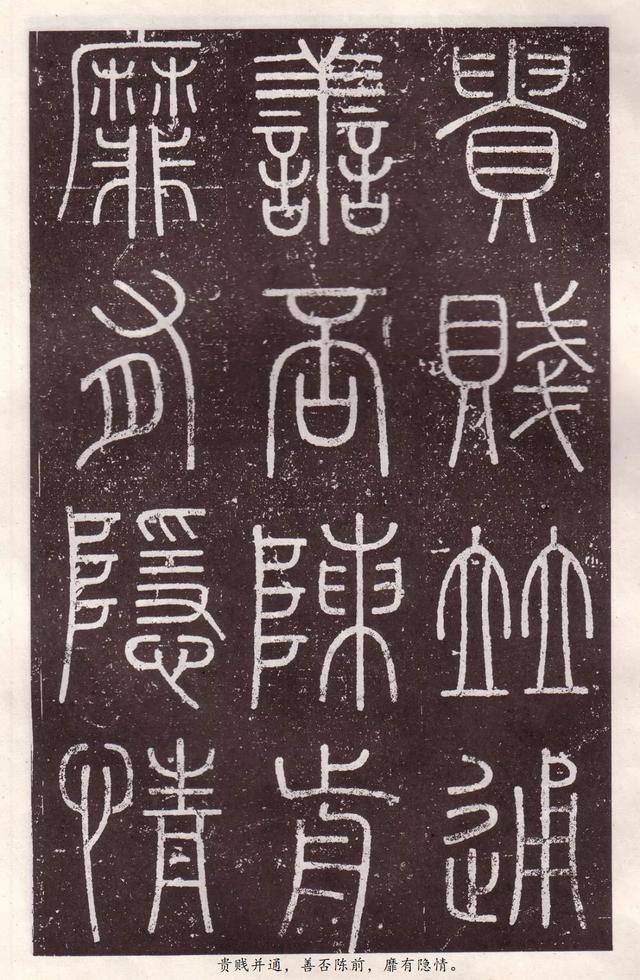 貴賤並通
善否陳前
靡有隱情
贵贱并通，善否陈前，靡有隐情。